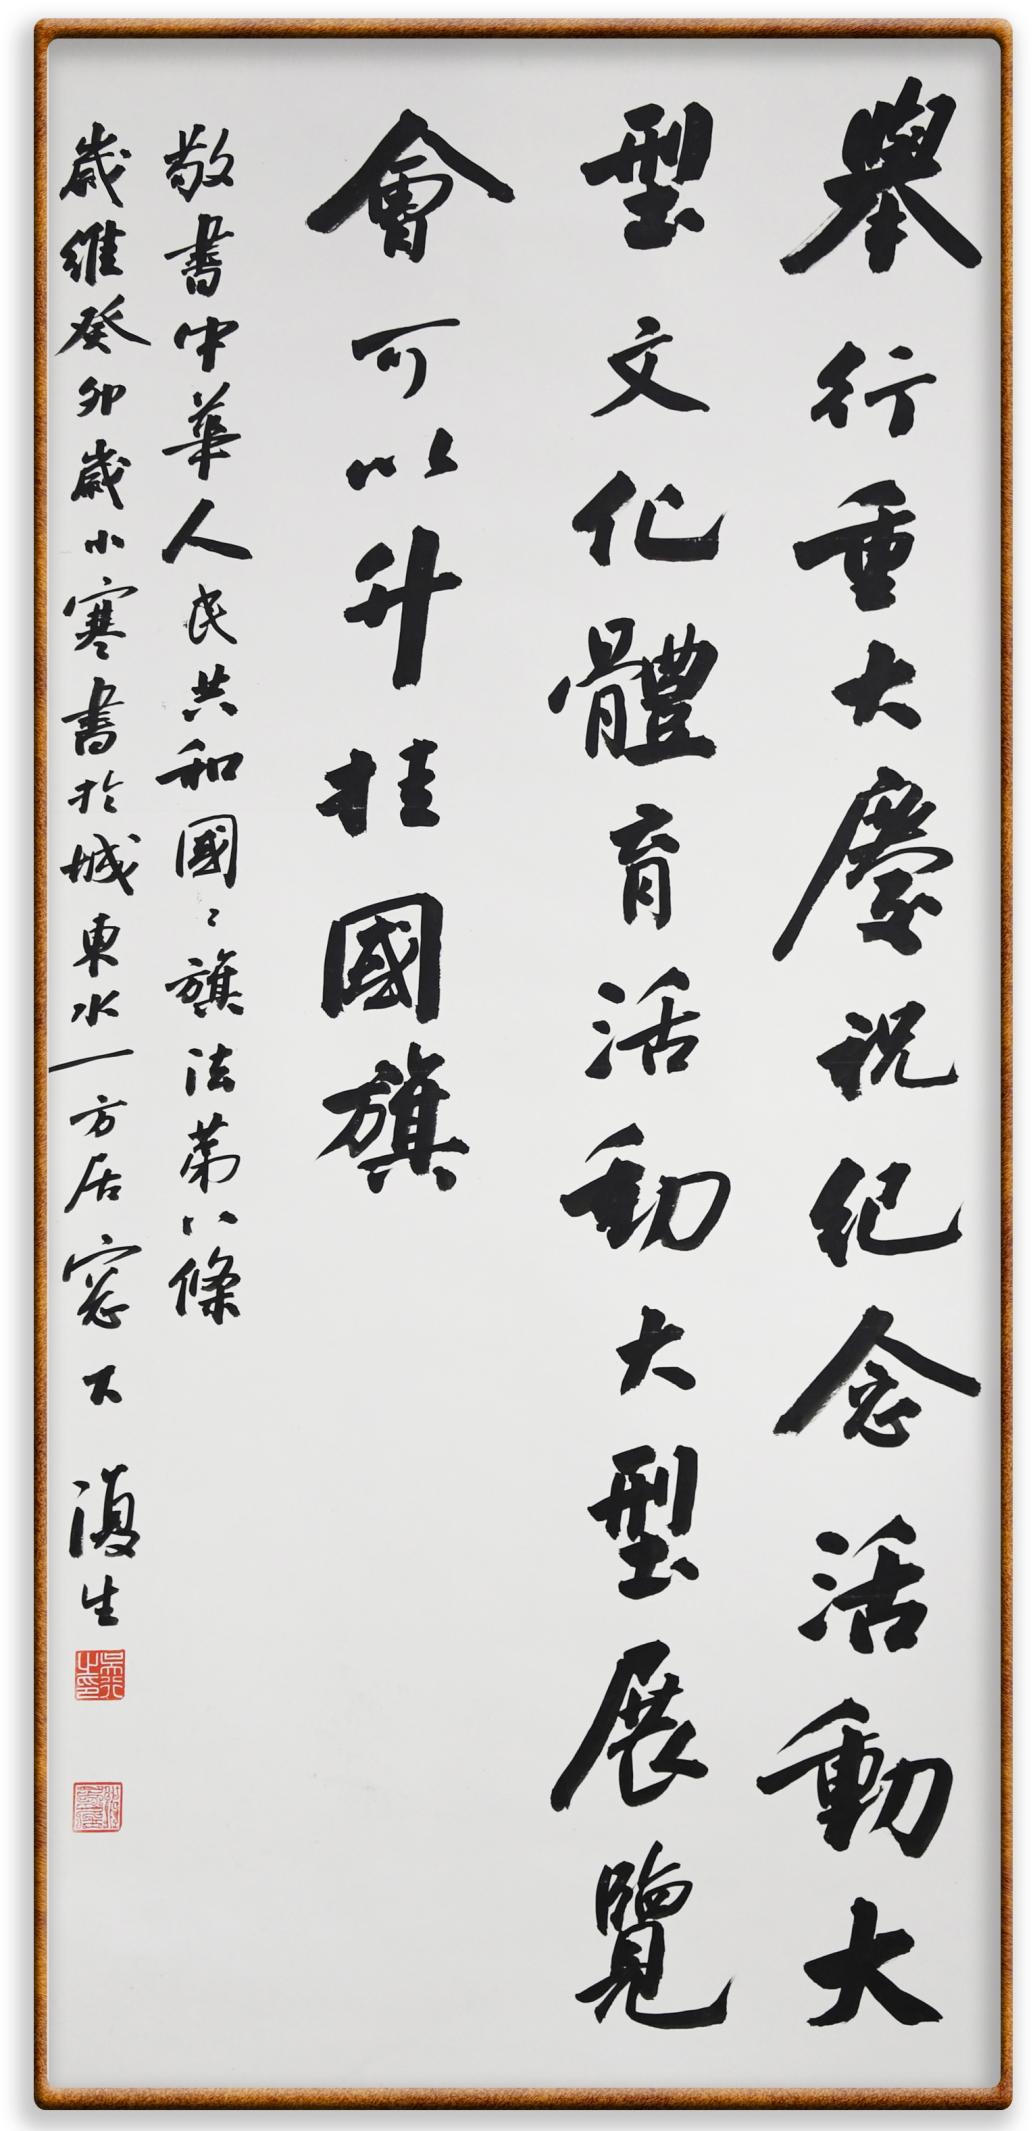 舉行重大慶祝紀念活動大
型文化體育活動大型展覽
會可以升挂國旗
敬書中華人民共和國〻旗法第八條
歲維癸卯歲小寒書於城東水一方居窓下 復生